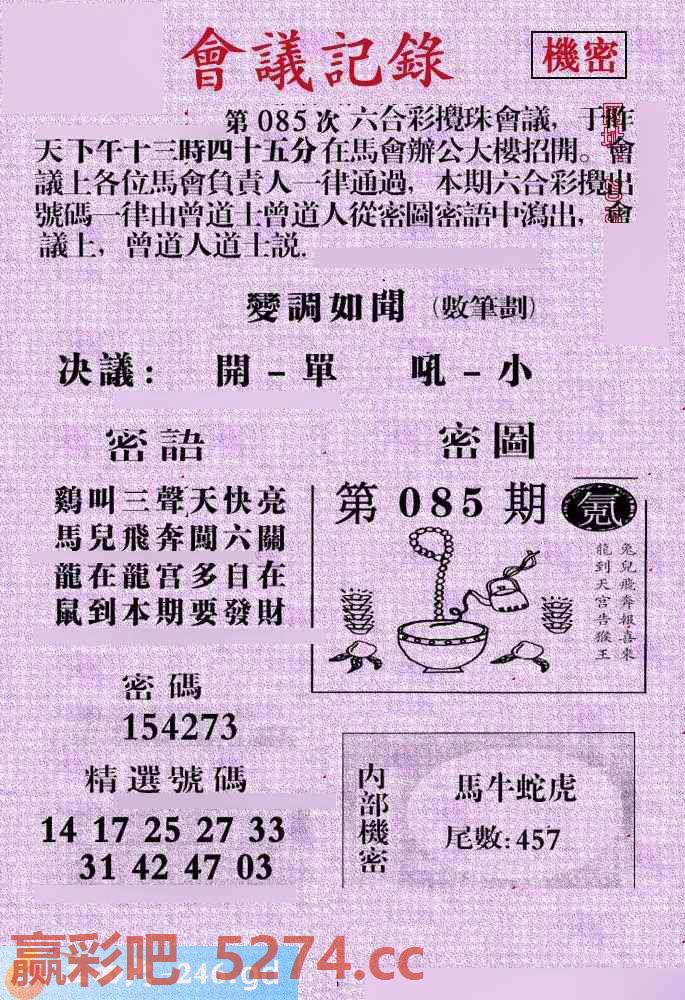 會議記錄
機密
第 085 次 六合彩攪珠會議，于昨
天下午十三時四十五分在馬會辦公大樓招開。會
議上各位馬會負責人一律通過，本期六合彩攪出
號碼一律由曾道士曾道人從密圖密語中瀉出，會
議上，曾道人道士説.
變調如聞（數筆劃）
决議： 開－單 吼－小
密語
鷄叫三聲天快亮
馬兒飛奔闖六關
龍在龍宫多自在
鼠到本期要發財
密圖
第 085 期
兔兒飛奔報喜來
龍到天宫告猴王
密碼
154273
精選號碼
14 17 25 27 33
31 42 47 03
内部機密
馬牛蛇虎
尾數:457
赢彩吧 5274.cc
246.gd